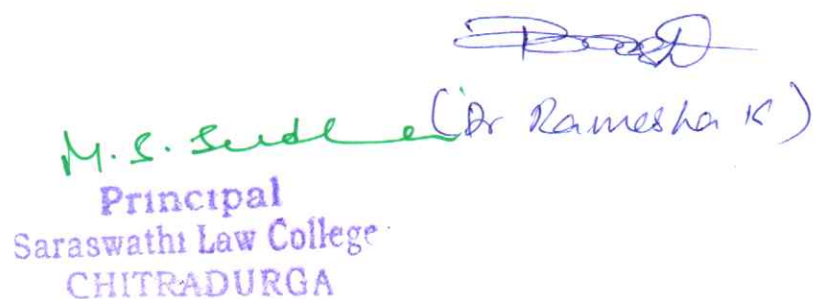 (Dr Ramesha K)
M. S. Sudha
Principal
Saraswathi Law College
CHITRADURGA